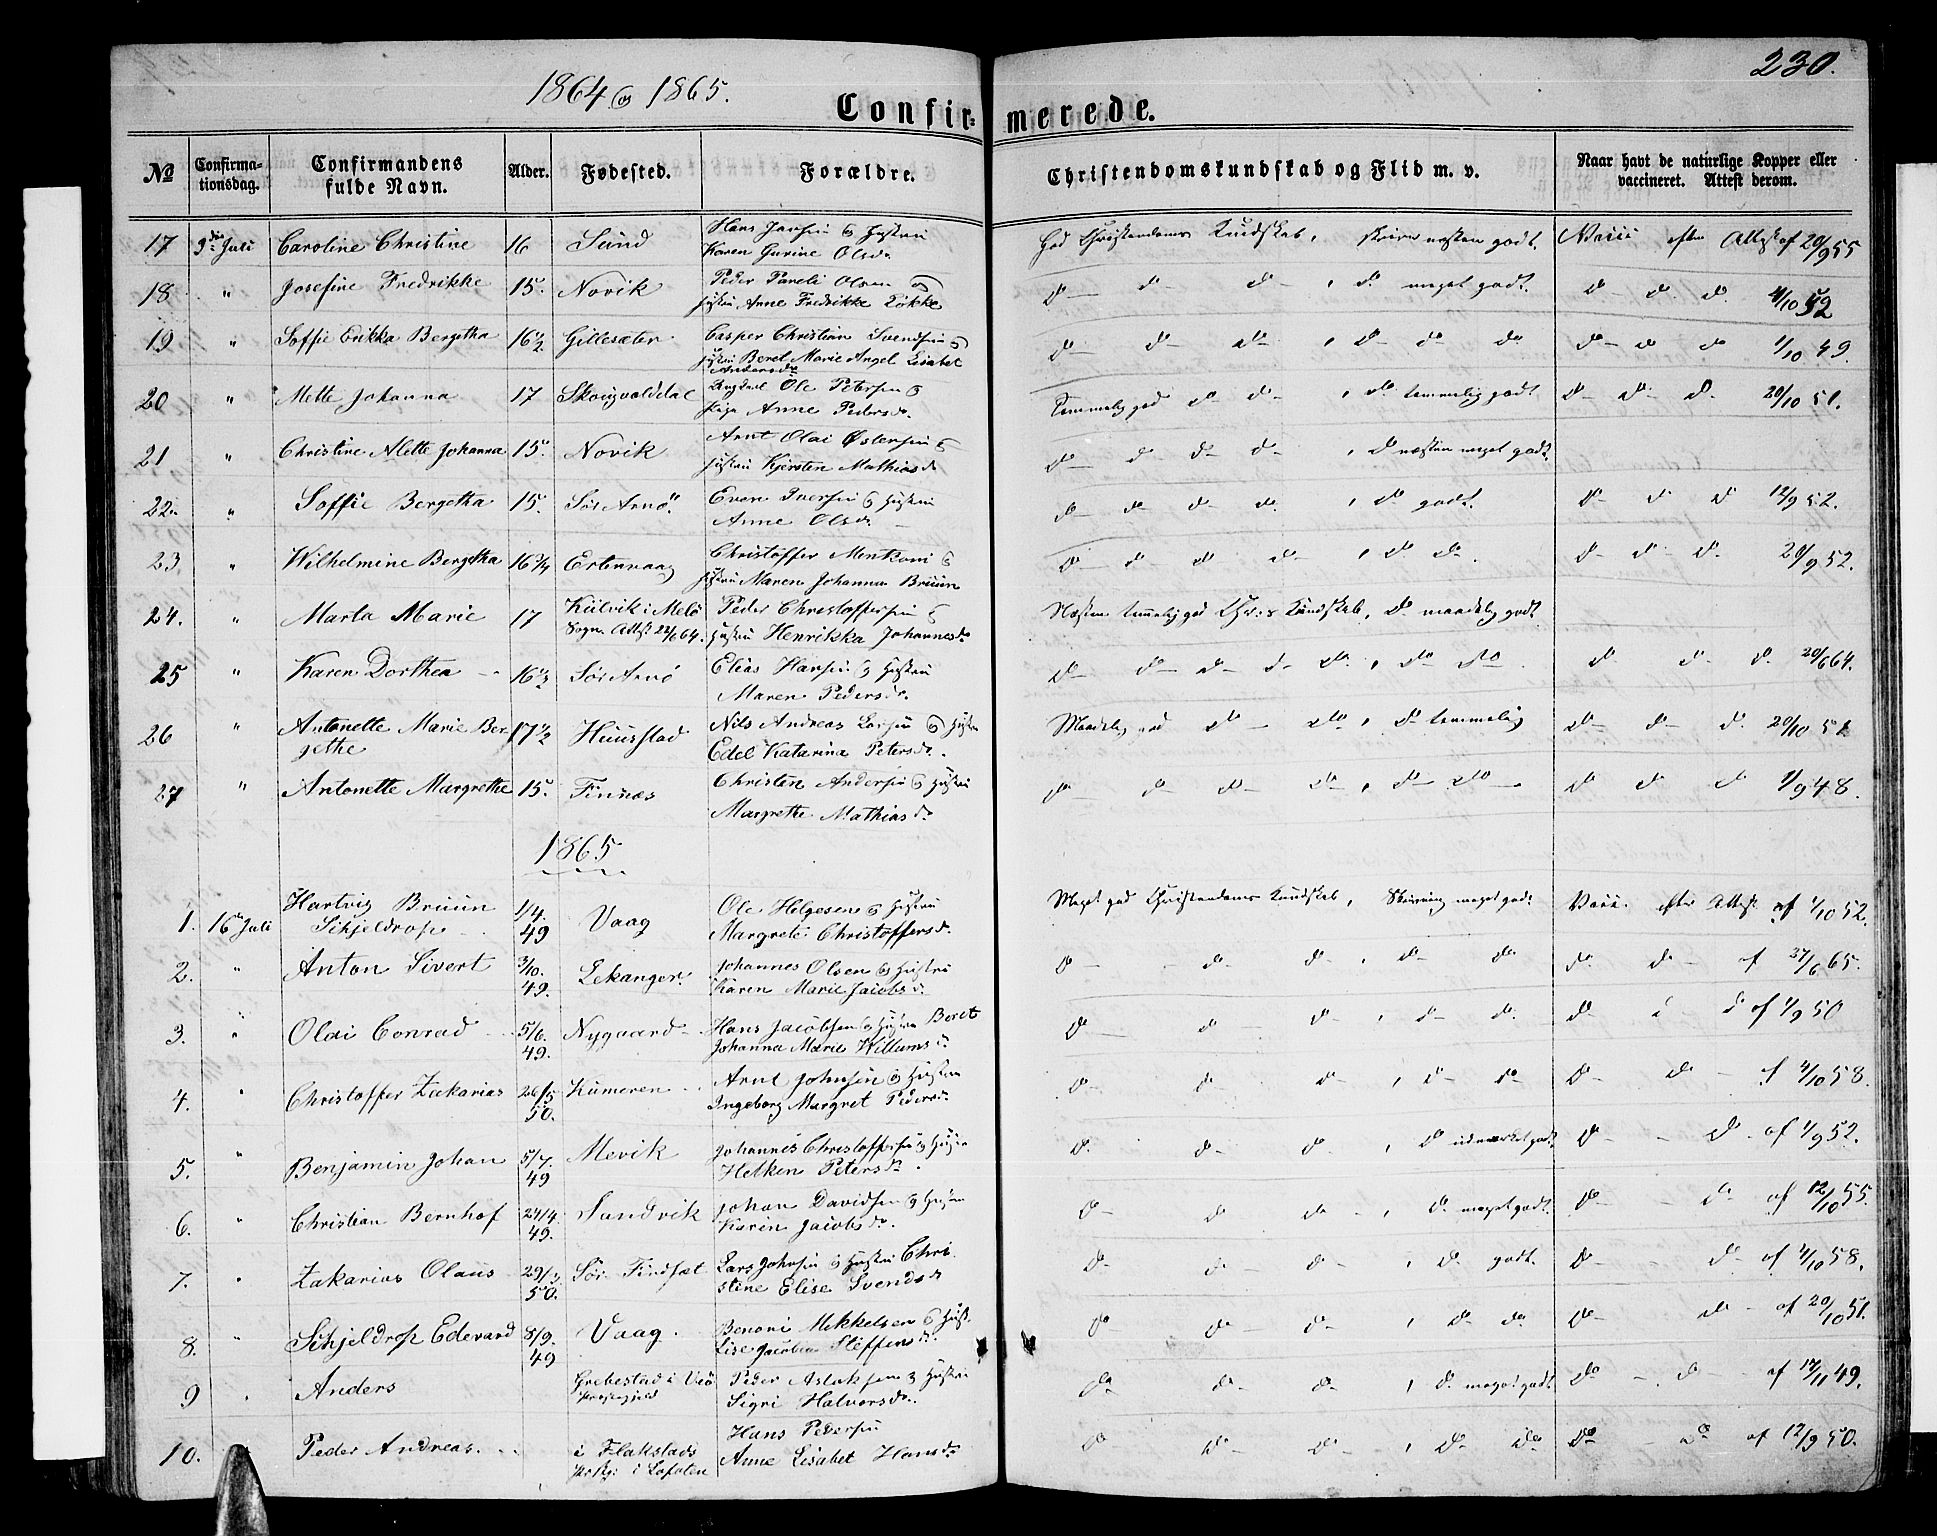 230.
1864 og 1865.
Confirmerede.
No Confirmationsdag. Confirmandens fulde Navn. Alder. Fødested. Forældre. Christendomskundskab og Flid m. v. Naar havt de naturlige Kopper eller vaccineret. Attest derom.
17 3die Juli Caroline Christine 16 Sund Hans Jansen og Hustru
Karen Gurine Olsdr God Christendoms Kundskab, skriver næsten godt. Vacc efter Attest af 20/9 55
18 " Josefine Fredrikke 15. Novik Peder Pareli Olsen og
Hustru Anne Fredrikke Løkke do do do, do meget godt. do do do 4/10 52
19 " Soffie Erikka Bergetha 16 1/2 Gillesæter Casper Christian Svendsen og
Hustru Beret Marie Angel Lisabet
Andersdr do do do, do do do do do do 1/10 49.
20 " Mette Johanna 17 Skougvolddal Ungkarl Ole Petersen og
Pige Anne Pedersdr. Temmelig god do do, do temmelig godt do do do 20/10 51.
21 " Christine Alette Johanna 15. Novik Arnt Olai Østensen og
Hustru Kjersten Mathiasdr do do do do, do næsten meget godt.
22. " Soffie Bergetha 15. Sør Arnø. Even Iversen og Hustru
Anne Olsdr do do do do, do godt. do do do 12/9 52.
23 " Wilhelmine Bergetha 16 3/4 Ertenvaag Christoffer Menkoni og
Hustru Maren Johanna Bruun do do do do, do do. do do do 20/9 52.
24. " Marta Marie 17 Kilvik i Melø
Sogn. Attst 22/6 64. Peder Christoffersen og
Hustru Henrikka Johannesdr Næsten temmelig god Chr:s Kundskab, do maadelig godt
25 " Karen Dorthea 16 1/2 Sør Arnø Elias Hansen og Hustru
Maren Pedersdr. do do do do do, do do do do do 20/6 64.
26 " Antonette Marie Bergethe 17 1/2 Huusstad Nils Andreas Larsen og Hustru
Edel Katarina Petersdr. Maadelig god do do, do temmelig do do do 20/10 52
27 " Antonette Margrethe 15. Finnæs Christen Andersen og Hustru
Margrethe Mathiasdr do do do do, do do do do do 1/9 48.
1865
1. 16de Juli Hartvig Bruun
Schjeldrop 1/4. 49 Vaag Ole Helgesen og Hustru
Margrete Christoffersdr. Meget god Christendoms Kundskab, Skrivning meget godt Vacc. efter Attest af 1/10 52.
2. " Anton Sivert 3/10. 49. Lekanger. Johannes Olsen og Hustru
Karen Marie Jacobsdr. do do do, do do do do af 27/6 65.
3. " Olai Conrad 5/6. 49. Nygaard Hans Jacobsen og Hustru Beret
Johanna Marie Willumsdr do do do, do do. do do af 1/9 50
4. " Christoffer Zakarias 26/5 50. Kumeren Arnt Johnsen og Hustru
Ingeborg Margret Pedersdr do do do, do do do do af 4/10 58.
5. " Benjamin Johan 5/7. 49 Mevik Johannes Christoffersen og Hustru
Helken Petersdr. do do do, do udmærket godt do do af 1/9 52.
6. " Christian Bernhof 24/4. 49. Sandvik Johan Davidsen og Hustru
Karin Jacobsdr. do do do, do meget godt. do do af 12/10 55.
7. " Zakarias Olaus 29/3 50. Sør Findset Lars Johnsen og Hustru Christine
Elise Svendsdr do do do, do godt. do do af 4/10 58.
8. " Schjeldrop Edevard 8/9. 49 Vaag. Benoni Mekkelsen og Hustr.
Lise Jacobea Steffensdr. do do do, do do. do do af 20/10 51.
9 " Anders Grebestad i Præstegjeld Peder Aslaksen og Hustru
Sigri Halvorsdr. do do do, do meget godt do do af 17/11 49.
10. Peder Andreas. i Flakstads
Prstgj: i Lofoten Hans Pedersen
Anne Lisabet Hansdr do do do, do do do do af 12/9 50.